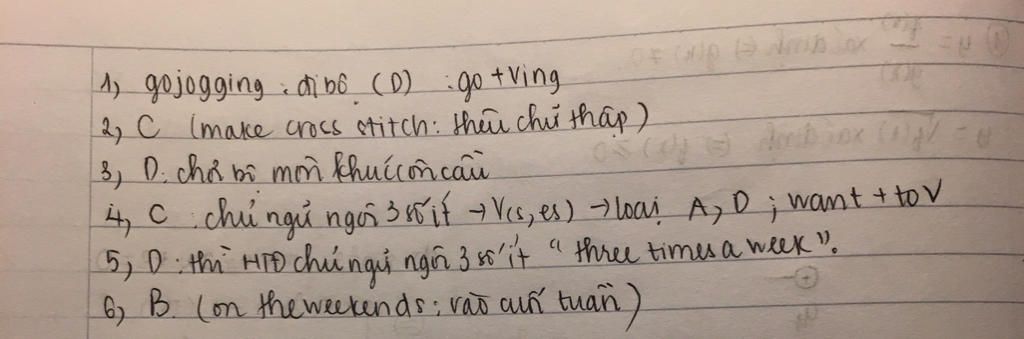 1, go jogging : đi bộ (D) : go + Ving
2, C (make cross stitch : thêu chữ thập)
3, D : chơi bộ môn khúc côn cầu
4, C : chủ ngữ ngôi 3 số ít → V(s, es) → loại A, D ; want + to V
5, D : thì HTĐ chủ ngữ ngôi 3 số ít " three times a week ".
6, B. (on the weekends : vào cuối tuần)